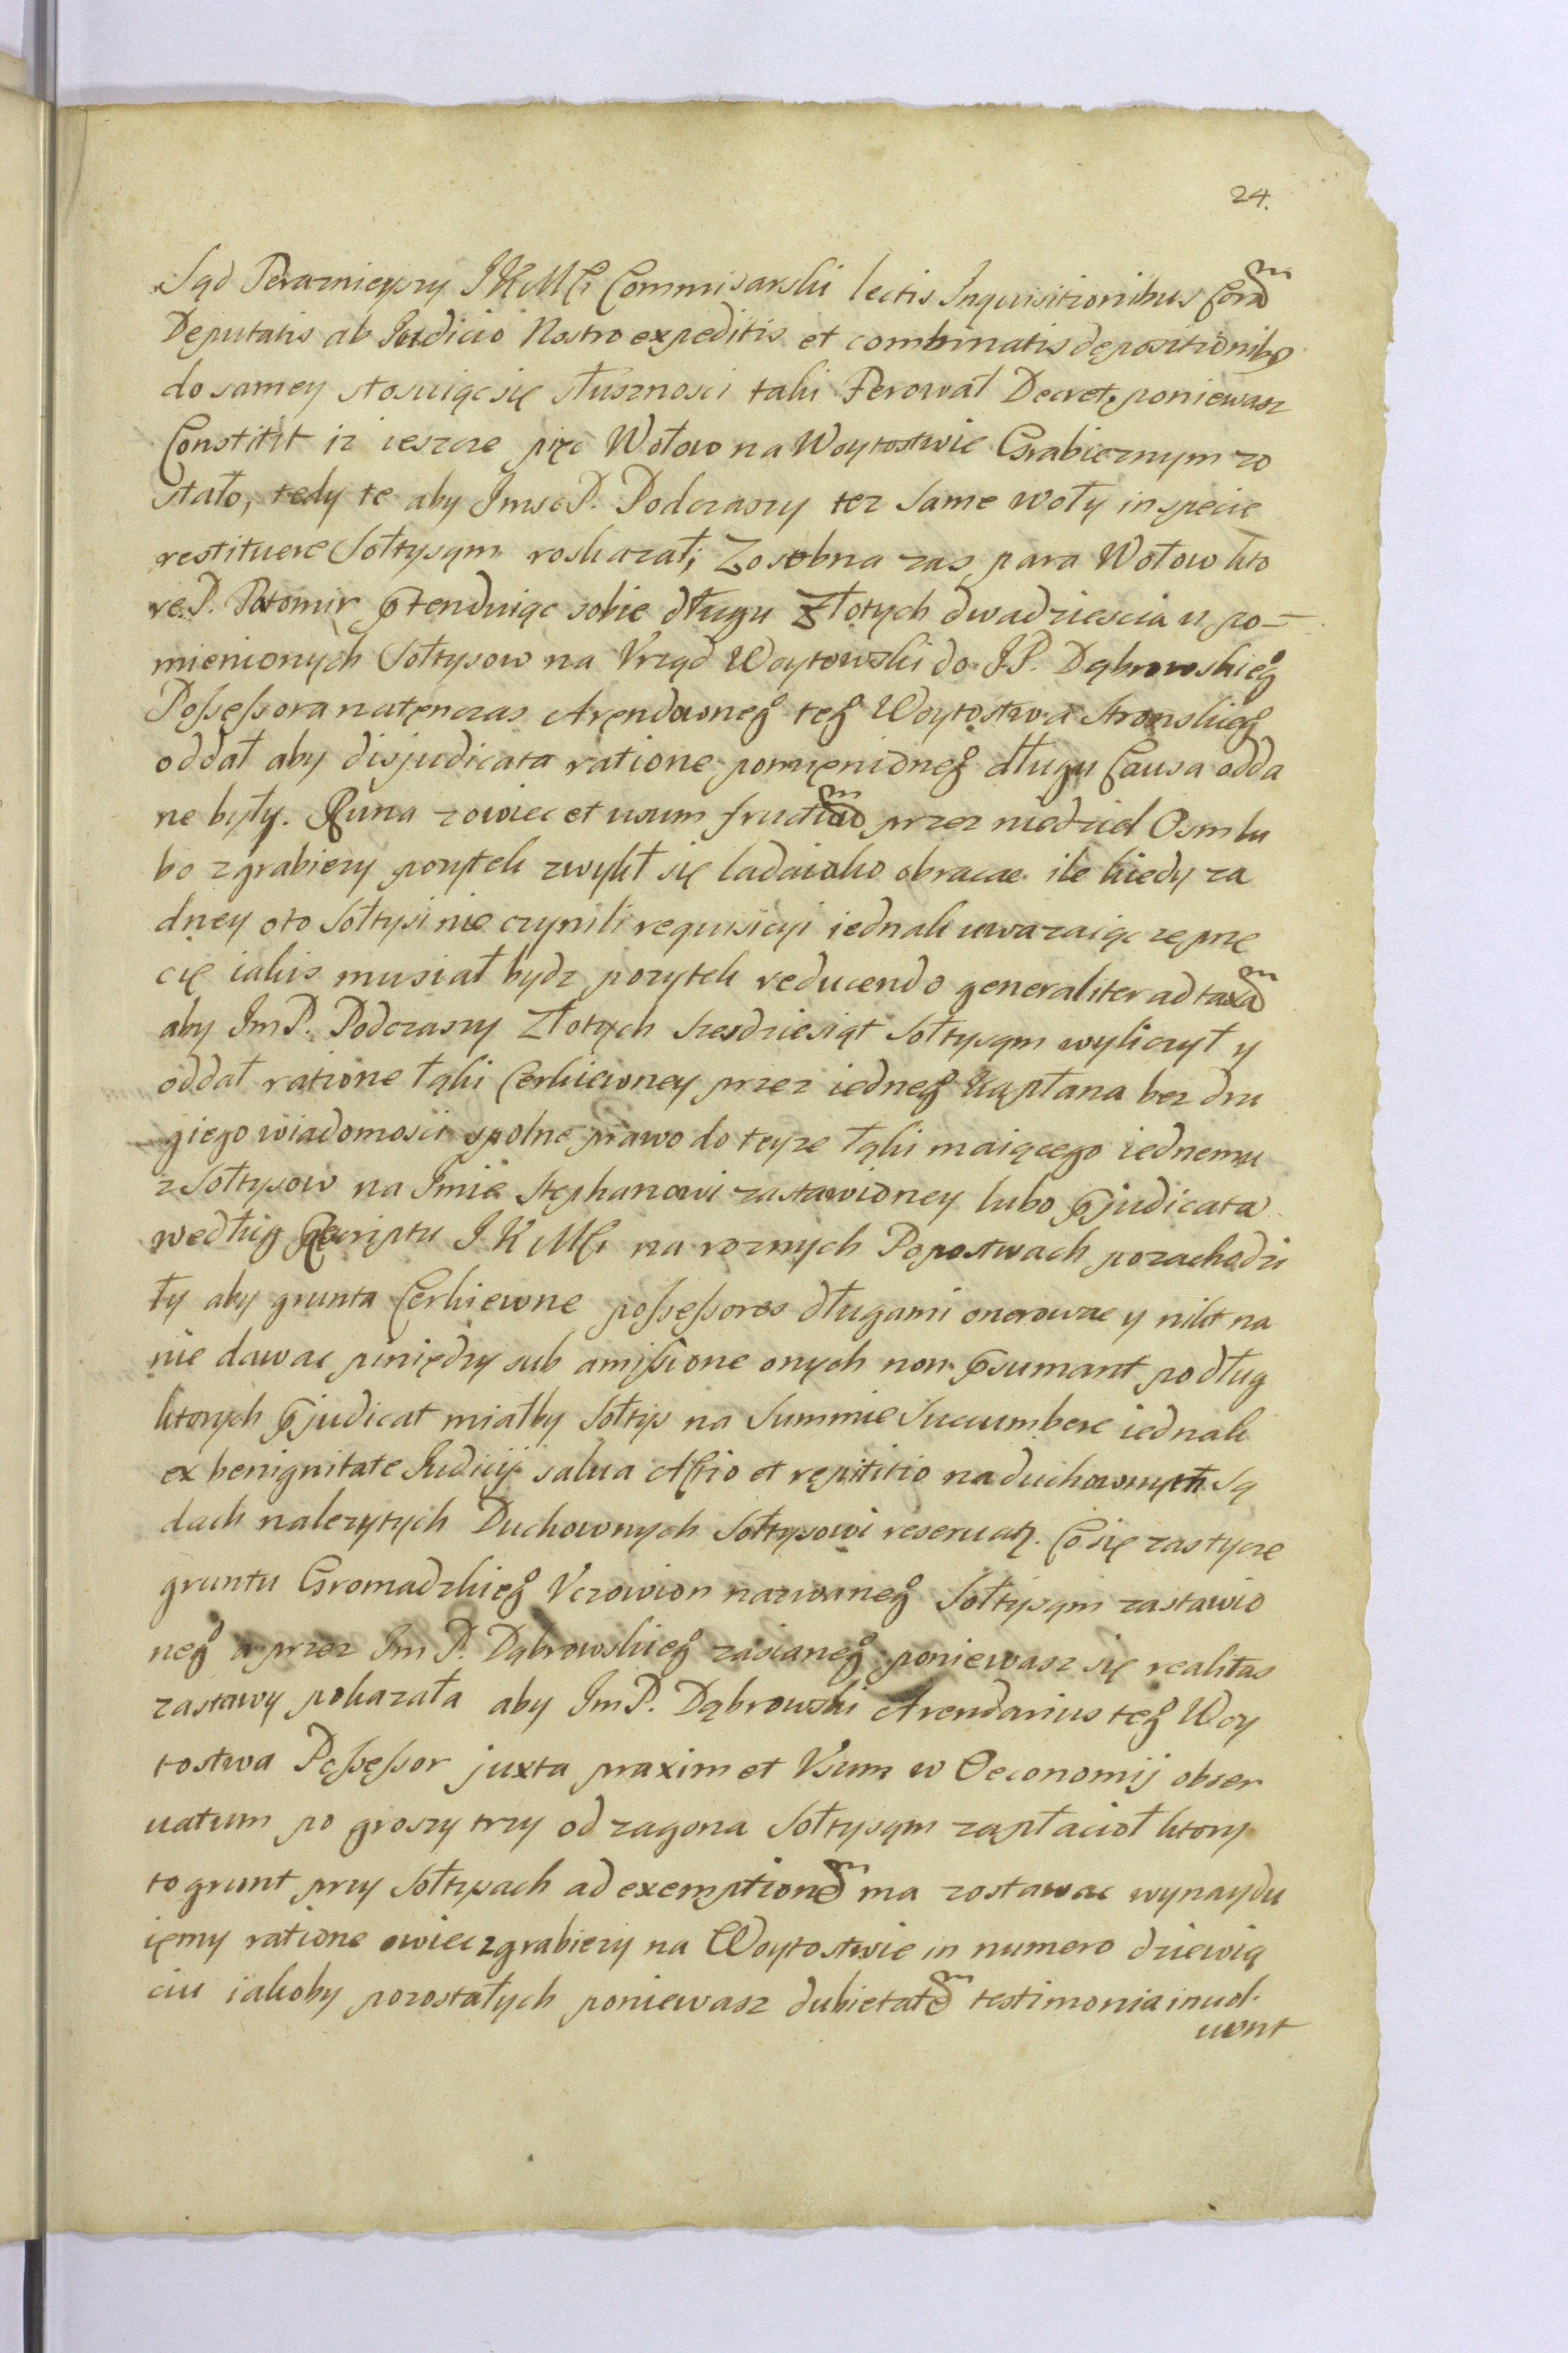 24.
Sąd Teraznieyszy JKMCi Commisarski lectis Inquisitionibus Coram
Deputatis ab Iudicio Nostro expeditis et combinatis depositionibus
do samey stosuiąc się słusznosci taki Ferował Decret, poniewasz
Constitit iz ieszcze pięc Wołow na Woytostwie Grabieznym zo
stało, tedy te aby Jmsc P. Podczaszy tez same woły in specie
restituere Sołtysąm roskazał; Zosobna zas para Wołow kto
re P. Potomir prętenduiąc sobie długu Złotych dwadziescia u po-
mienionych Sołtysow na Vrząd Woytowski do JP. Dąbrowskieg
Possessora natęnczas Aręndowneg teg Woytostwa Stronskieg
oddał aby disjudicata ratione pomięnioneg długu Causa odda
ne były. Runa z owiec et usum fructum przez niedziel Osm lu
bo z grabiezy pozytek zwykł się ladaiako obracac ile kiedy za
dney oto Sołtysi nie czynili requisicyi iednak uwazaiąc ze prze
cię iakis musiał bydz pozytek reducendo generaliter ad taxam
aby JmP. Podczaszy Złotych szesdziesiąt Sołtysąm wyliczył y
oddał ratione łąki Cerkiewney przez iedneg Kapłana bez dru
giego wiadomosci spolne prawo do teyze łąki maiącego iednemu
z Sołtysow na Jmie Stephanowi zastawioney lubo prejudicata
według Rescriptu JKMCi na roznych Popostwach pozachodzi
ły aby grunta Cerkiewne possessores długami onerowac y nikt na
nie dawac piniędzy sub amissione onych non presumant podług
ktorych prejudicat miałby Sołtys na Summie Succumbere iednak
ex benignitate Iudicij salua Actio et repititio na duchownych Są
dach nalezytych Duchownych Sołtysowi reseruatur. Co się zas tycze
gruntu Gromadzkieg Vzowion nazwaneg Sołtysąm zastawio
neg a przez JmP. Dąbrowskieg zasianeg poniewasz się realitas
zastawy pokazała aby JmP. Dąbrowski Arendarius teg Woy
tostwa Possessor juxta praxim et Vsum w Oeconomij obser
uatum po groszy trzy od zagona Sołtysąm zapłacioł ktory
to grunt przy Sołtysach ad exemptionem ma zostawac wynaydu
ięmy ratione owiec z grabiezy na Woytostwie in numero dziewią
ciu iakoby pozostałych poniewasz dubietatem testimonia inuol-
uunt